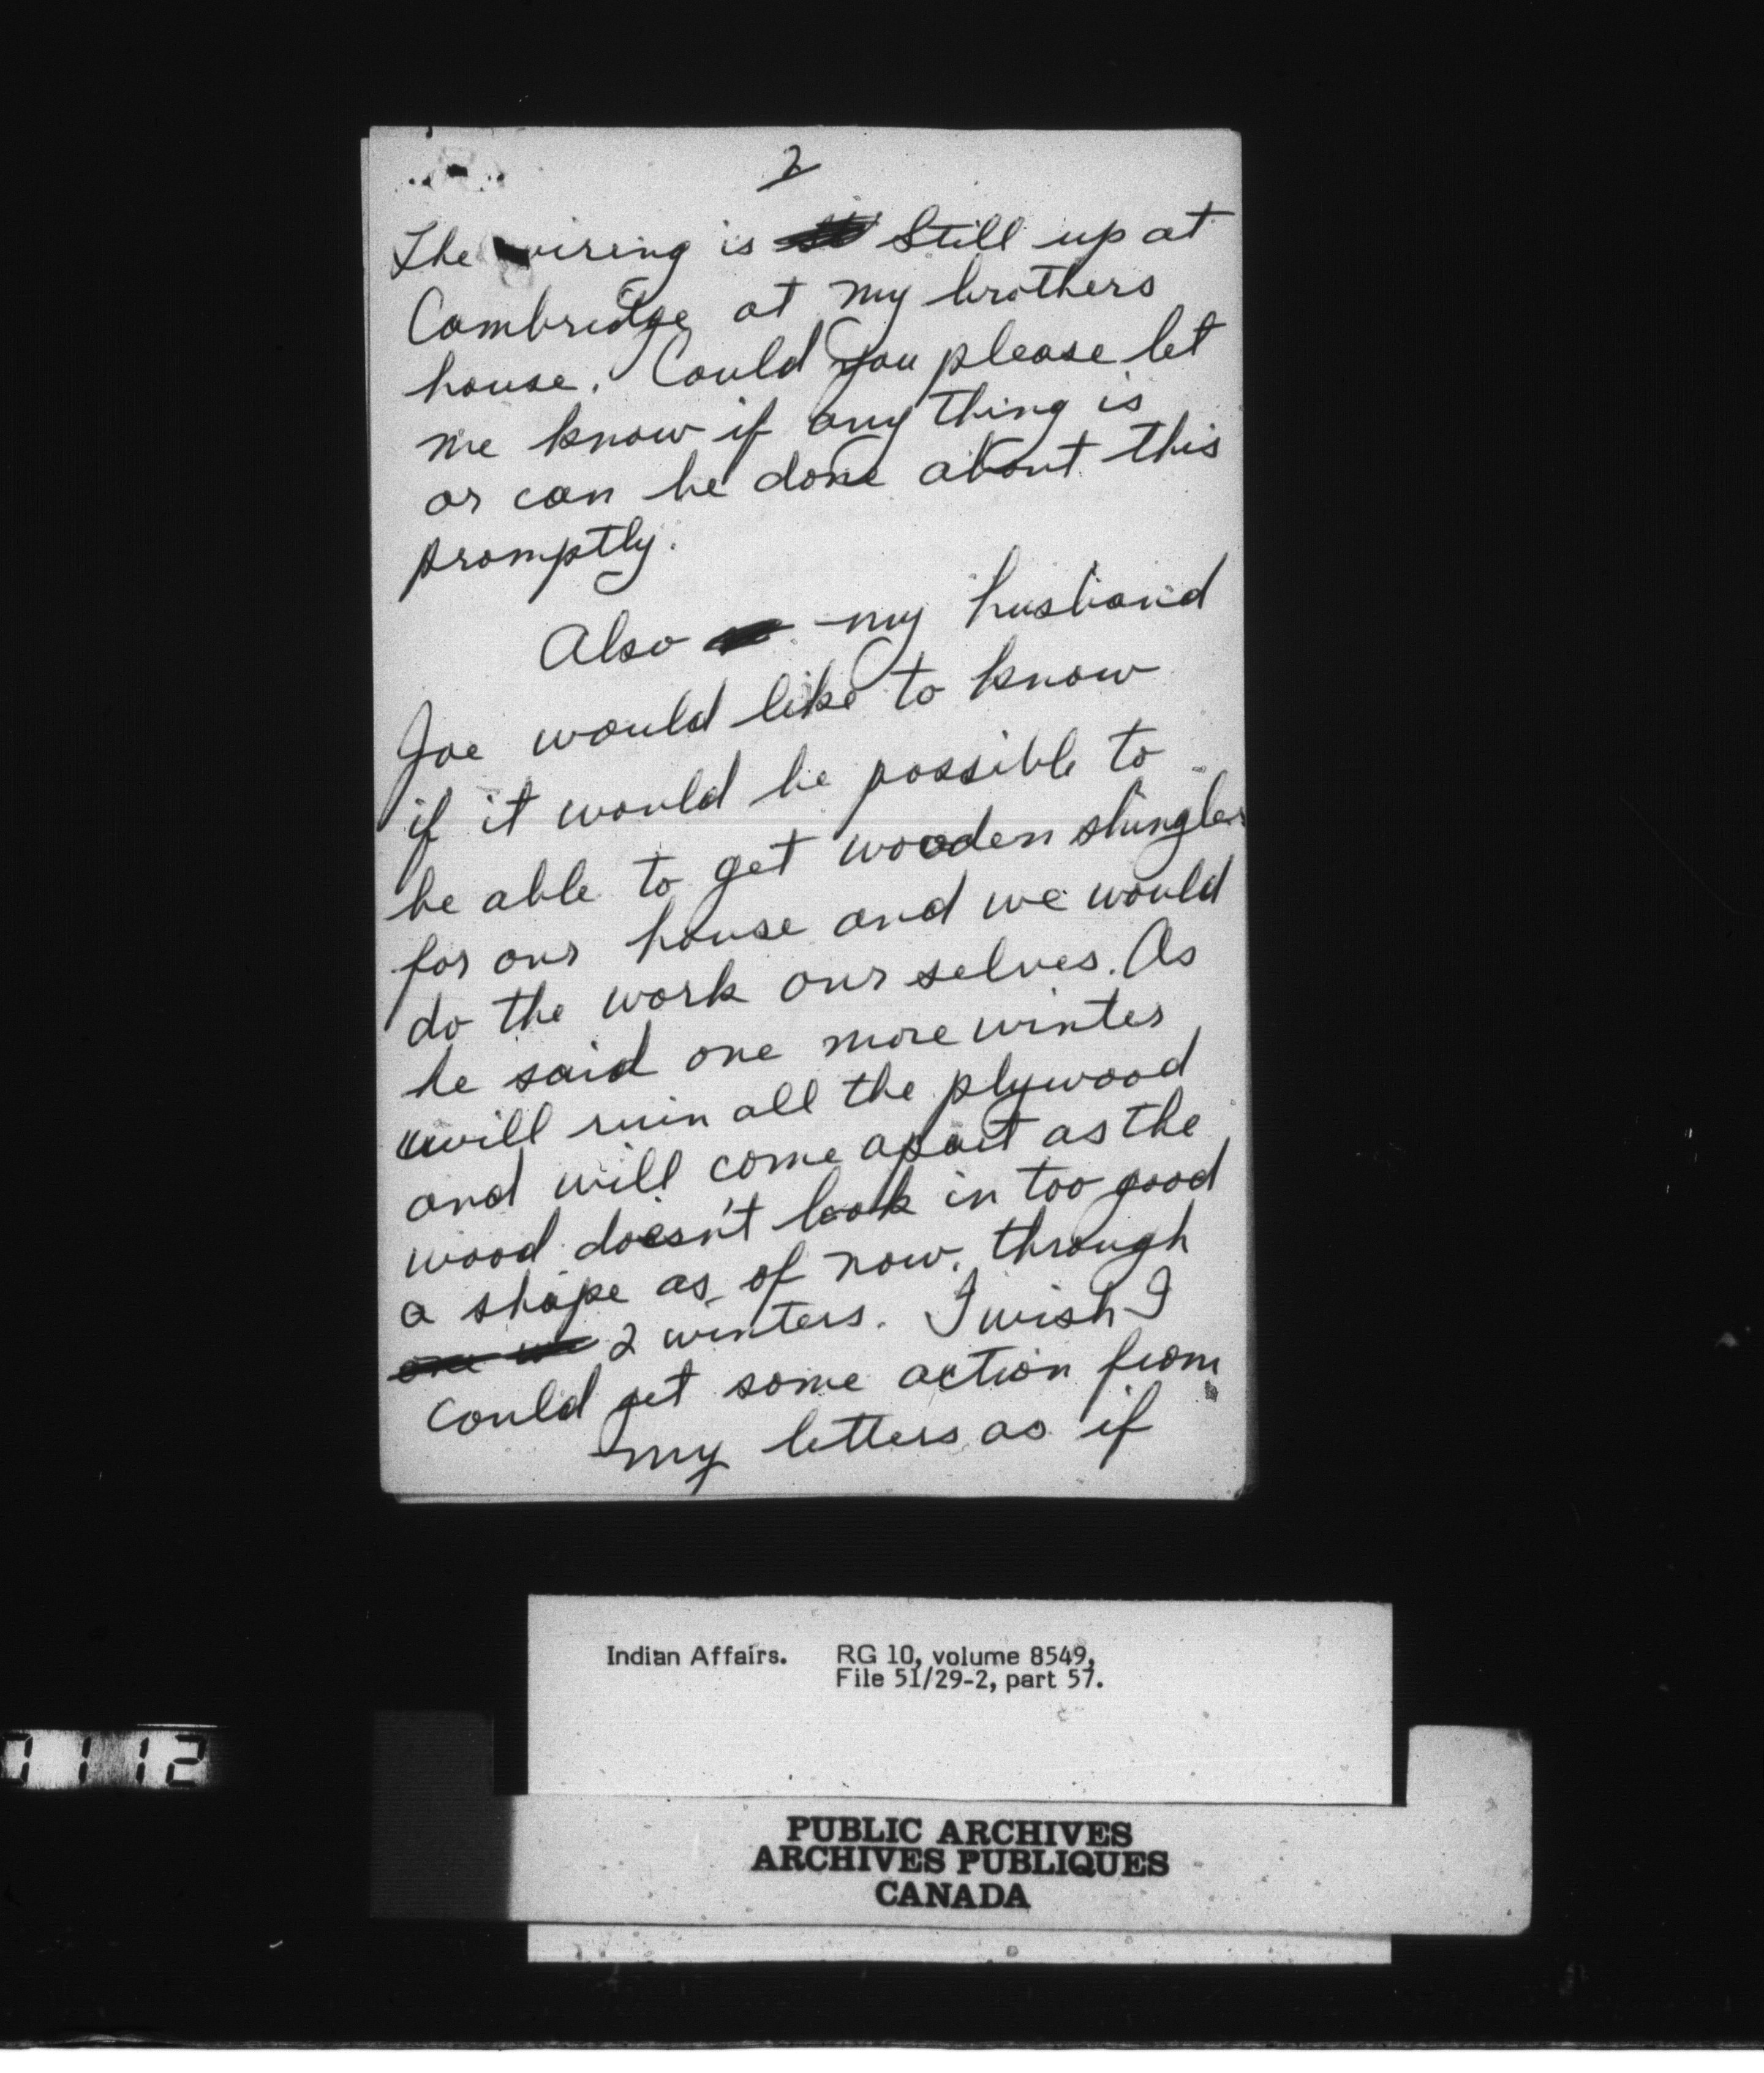 2
The wiring is Still up at
Cambridge at my brothers
house. Could you please let
me know if any thing is
or can be done about this
promptly.
Also my husband
Joe would like to know
if it would be possible to
be able to get wooden shingles
for our house and we would
do the work our selves. As
he said one more winter
will ruin all the plywood
and will come apart as the
wood doesn't look in too good
a shape as of now. through
2 winters. I wish I
could get some action from
my letters as if
Indian Affairs. RG 10, volume 8549,
File 51/29-2, part 57.
1112
PUBLIC ARCHIVES
ARCHIVES PUBLIQUES
CANADA